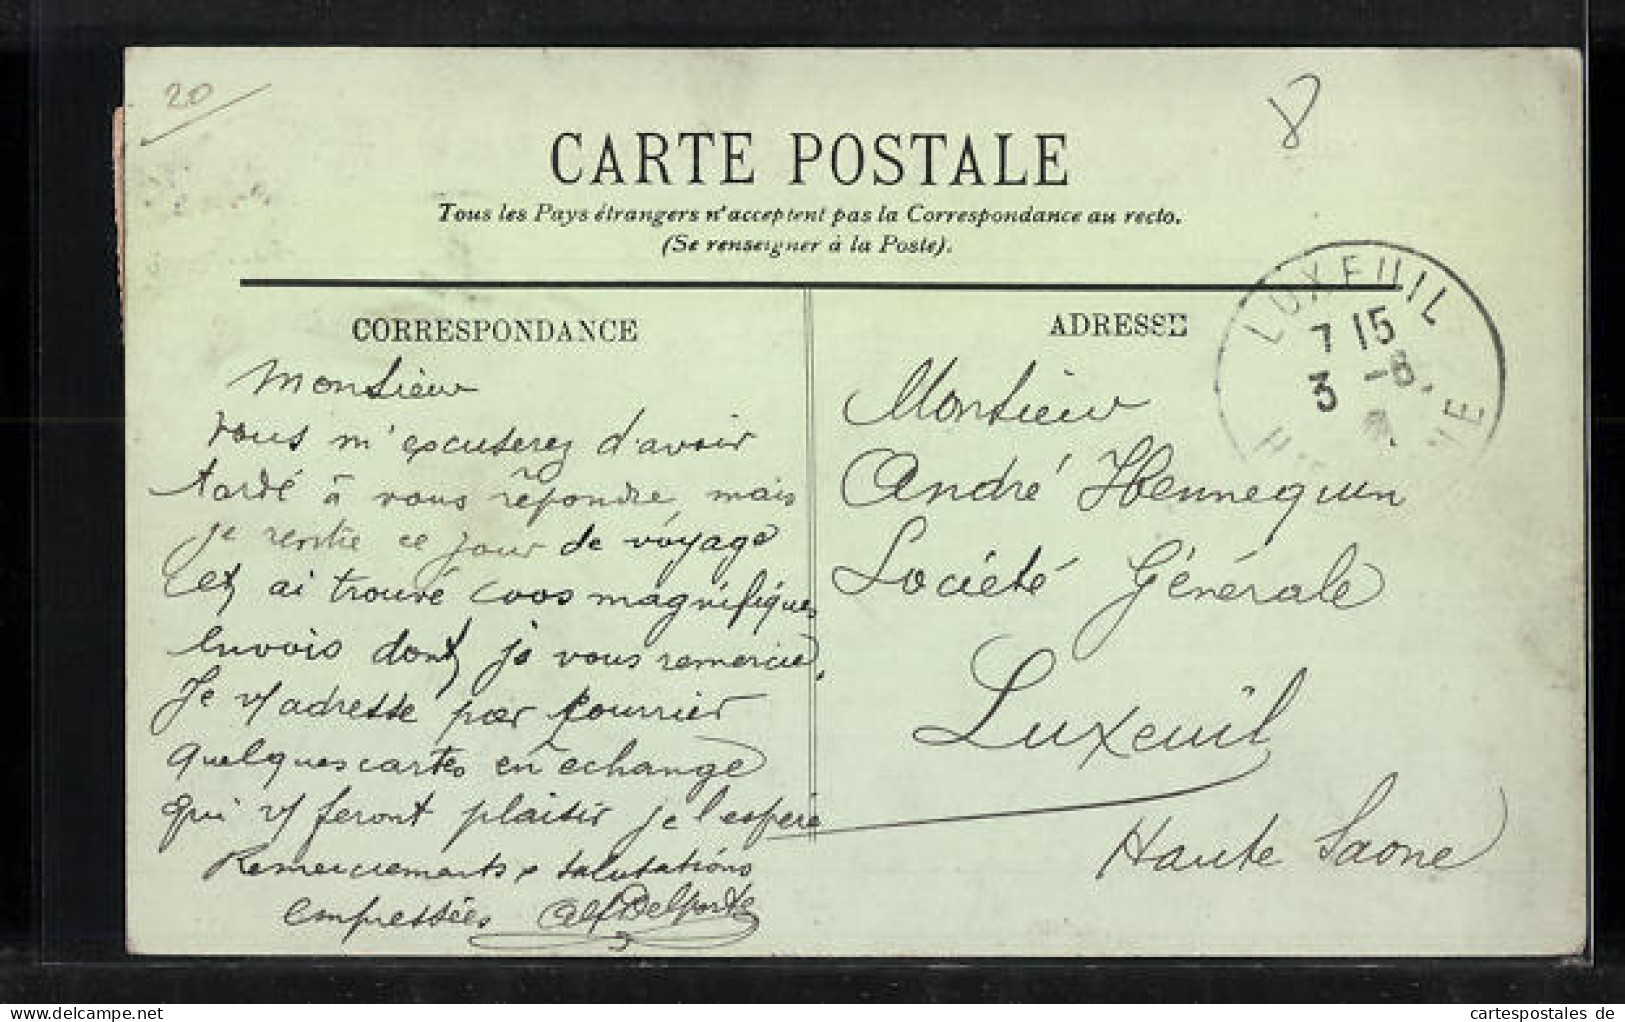 20
CARTE POSTALE
Tous les Pays étrangers n'acceptent pas la Correspondance au recto.
(Se renseigner à la Poste).
CORRESPONDANCE
Monsieur
vous m'excuserez d'avoir
tardé à vous répondre, mais
je rentre ce jour de voyage
et ai trouvé vos magnifiques
envois dont je vous remercie,
Je v/ adresse par courrier
quelques cartes en échange
qui v/ feront plaisir je l'espère
Remerciements & salutations
empressées Alf Delporte
ADRESSE
Monsieur
André Hennequin
Société Générale
Luxeuil
Haute Saone
LUXEUIL
7 15
3 -8
delcampe.net
cartespostales de